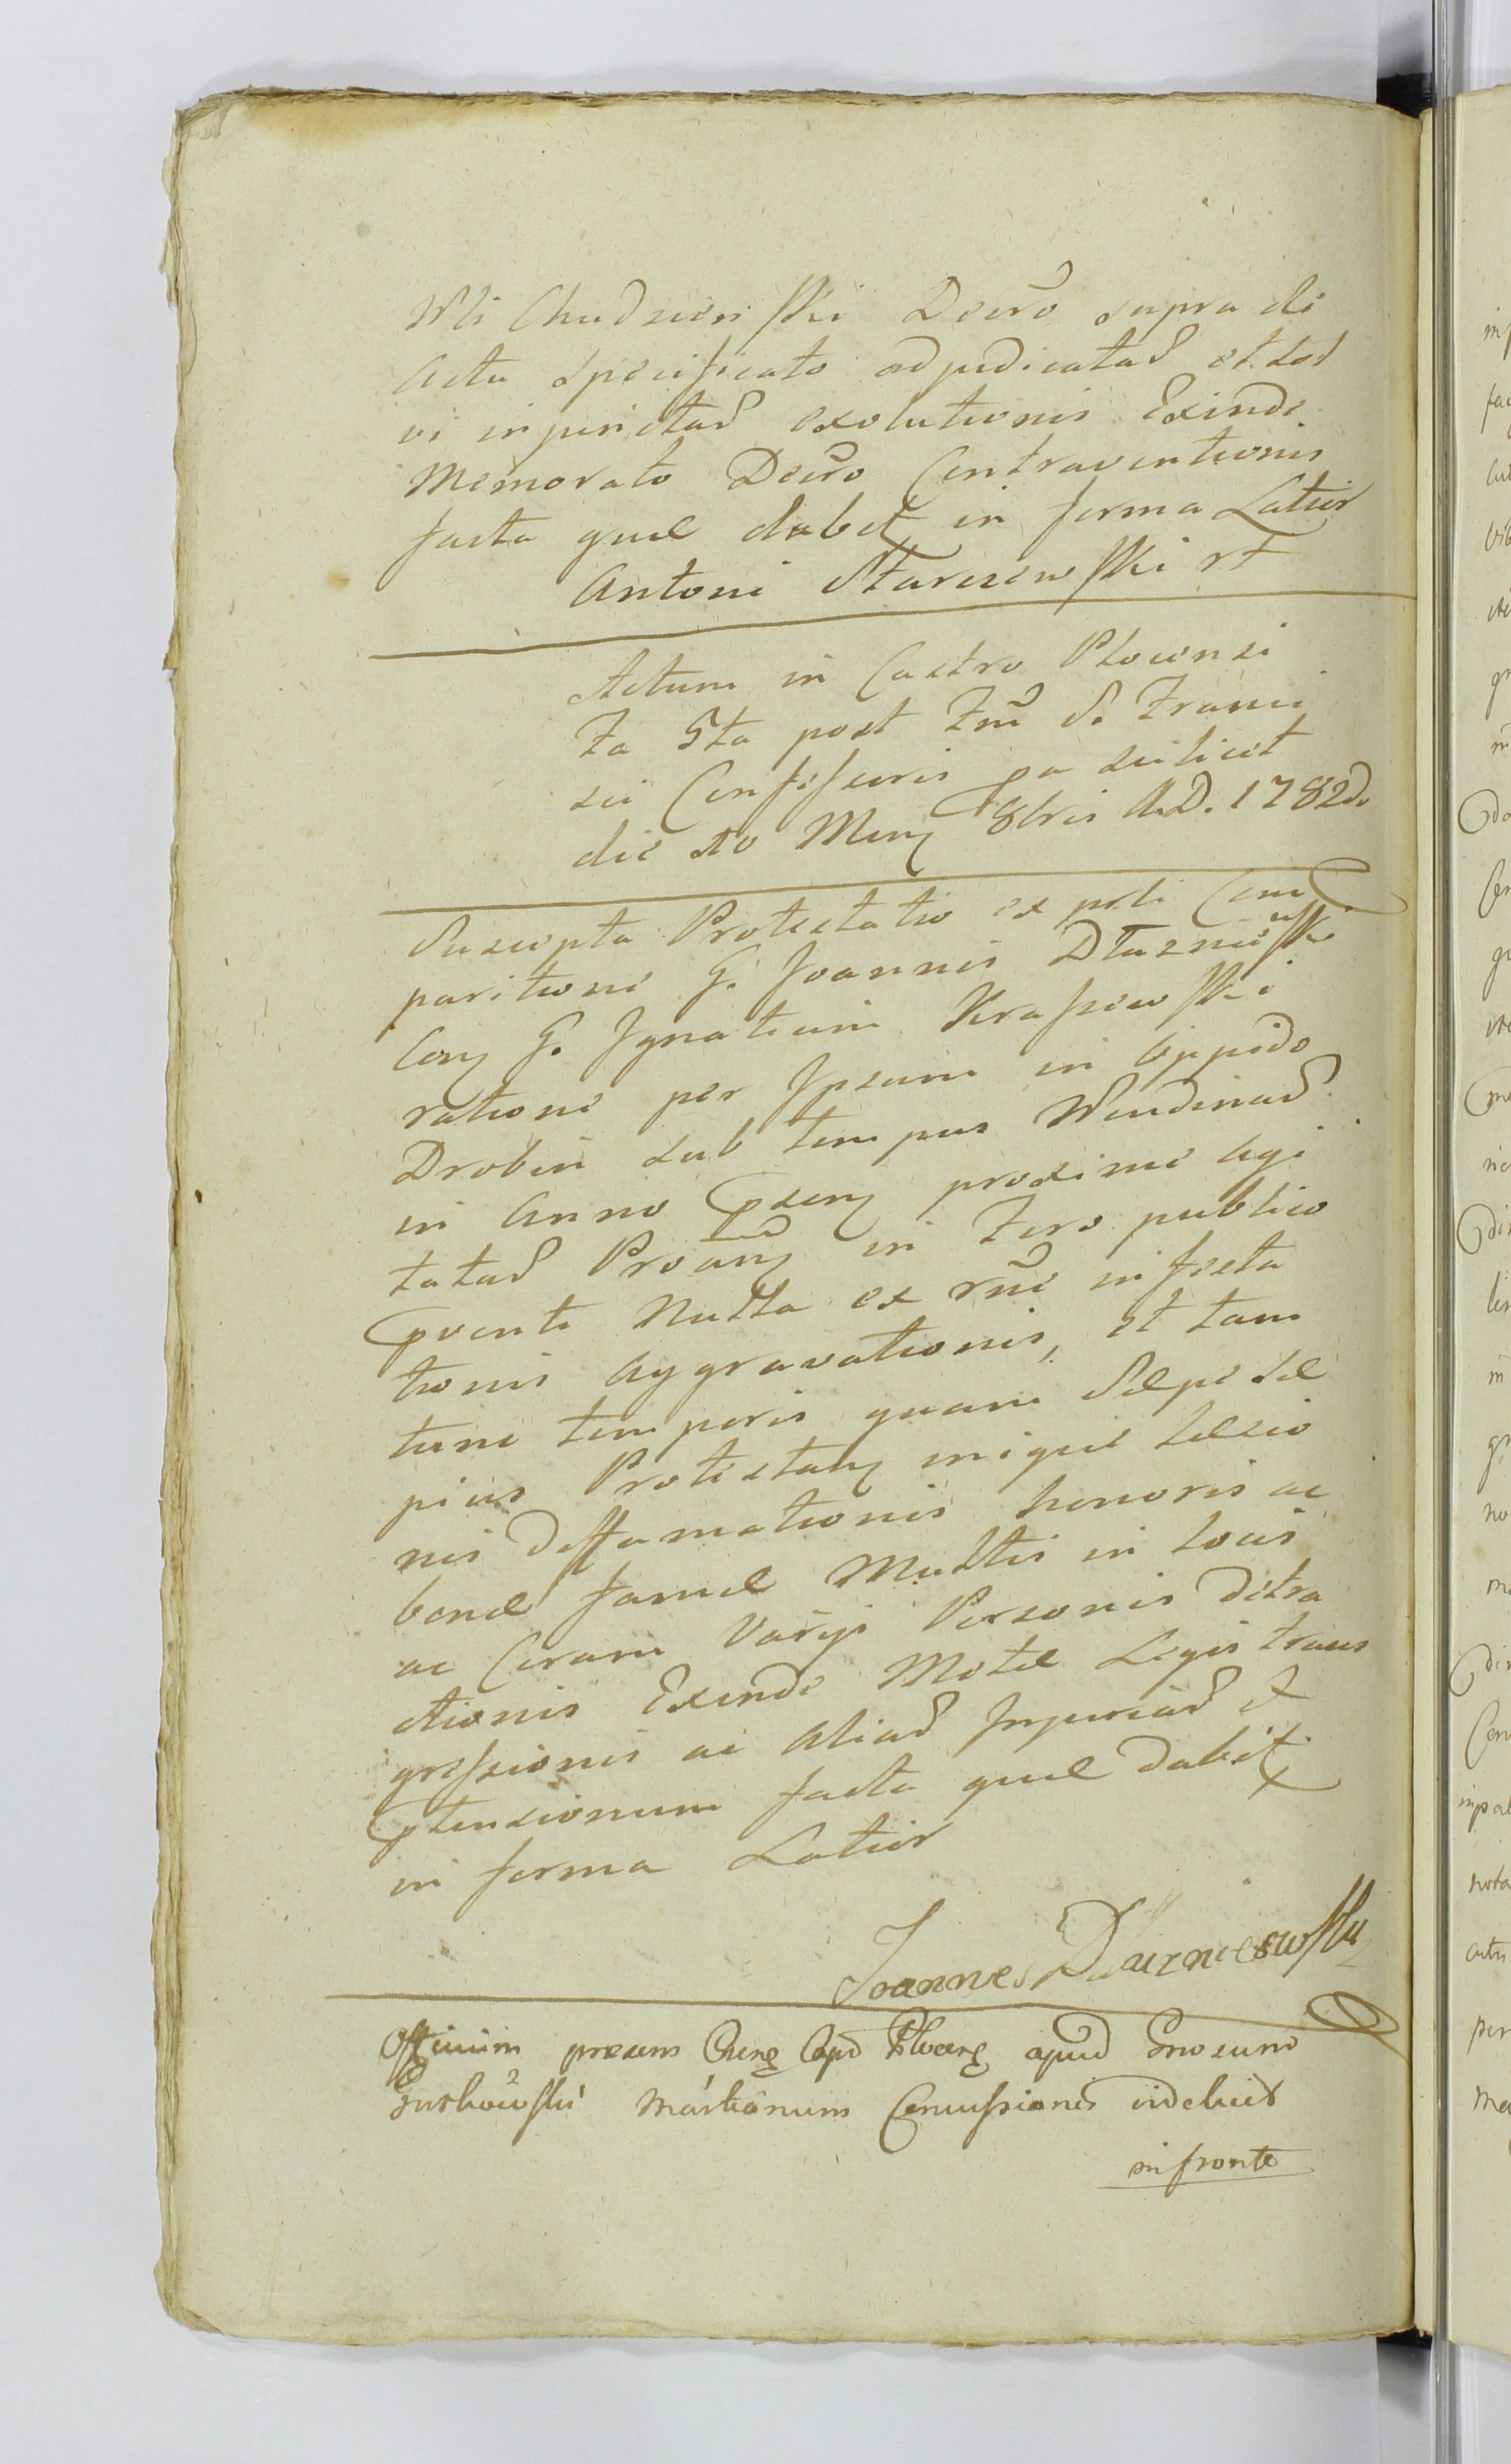 Mli Chudzienski Decro supra de
Actu specificato adjudicatað et sol
vi injunctað exolutionis Exinde
Memorato Decro Contraventionis
facta quæ dabet in forma Latior
Antoni Starczewski rt
Actum in Castro Plocensi
Fa 5ta post Fm S. Franci
sci Confessoris pa scilicet
die 10 Men 8bris A.D. 1782do
Suscepta Protestatio ex prsti Com
paritione G. Joannis Dłuzniewski
Con G. Ignatium Kraszewski
ratione per Ipsum in Oppido
Drobin sub tempus Nundinað
in Anno prsen proxime agi
tatað Protan in Foro publico
pvente Nulla ex rne infecta
tionis Aggravationis, et tam
tunc temporis quam Sæpe sæ
pius Protestan inique Læsio
nis Deffamationis honoris ac
bonæ famæ Multis in Locis
ac Coram Varijs Personis Detra
ctionis Exinde Motæ Legis trans
gressionis ac aliað Injuriað et
ptensionum facta quæ dabit
in forma Latior
Joannes Dłuzniewski
Officium præsens Cap apud Gnosum
Gutkowski Commissiones videlicet
in fronte